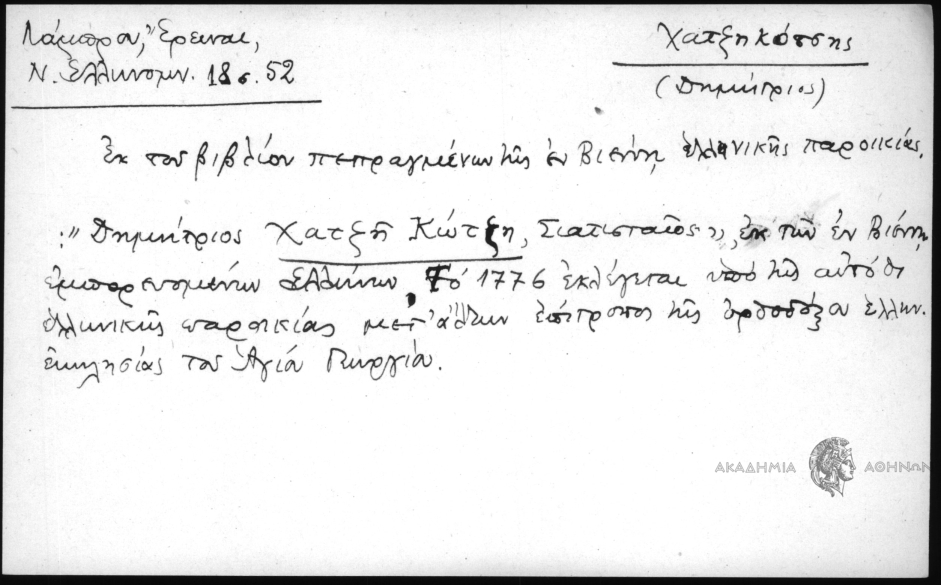 Λάμπρου, Ἔρευναι, Χατζηκότσης
Ν. Ἑλληνομν. 18 σ. 52 (Δημήτριος)
Ἐκ του βιβλίου πεπραγμένων τῆς ἐν Βιέννη ἑλληνικῆς παροικίας.
:" Δημήτριος Χατζῆ Κώτζη, Σιατισταῖος", ἐκ τῶν ἐν Βιέννη
ἐμπορευομένων Ἑλλήνων, Τό 1776 ἐκλέγεται ὑπό τῆς αὐτόθι
ἑλληνικῆς παροικίας μετ' ἄλλων ἐπίτροπος τῆς ὀρθοδόξου ἑλλην.
ἐκκλησίας τοῦ Ἁγίου Γεωργίου.
ΑΚΑΔΗΜΙΑ ΑΘΗΝΩΝ